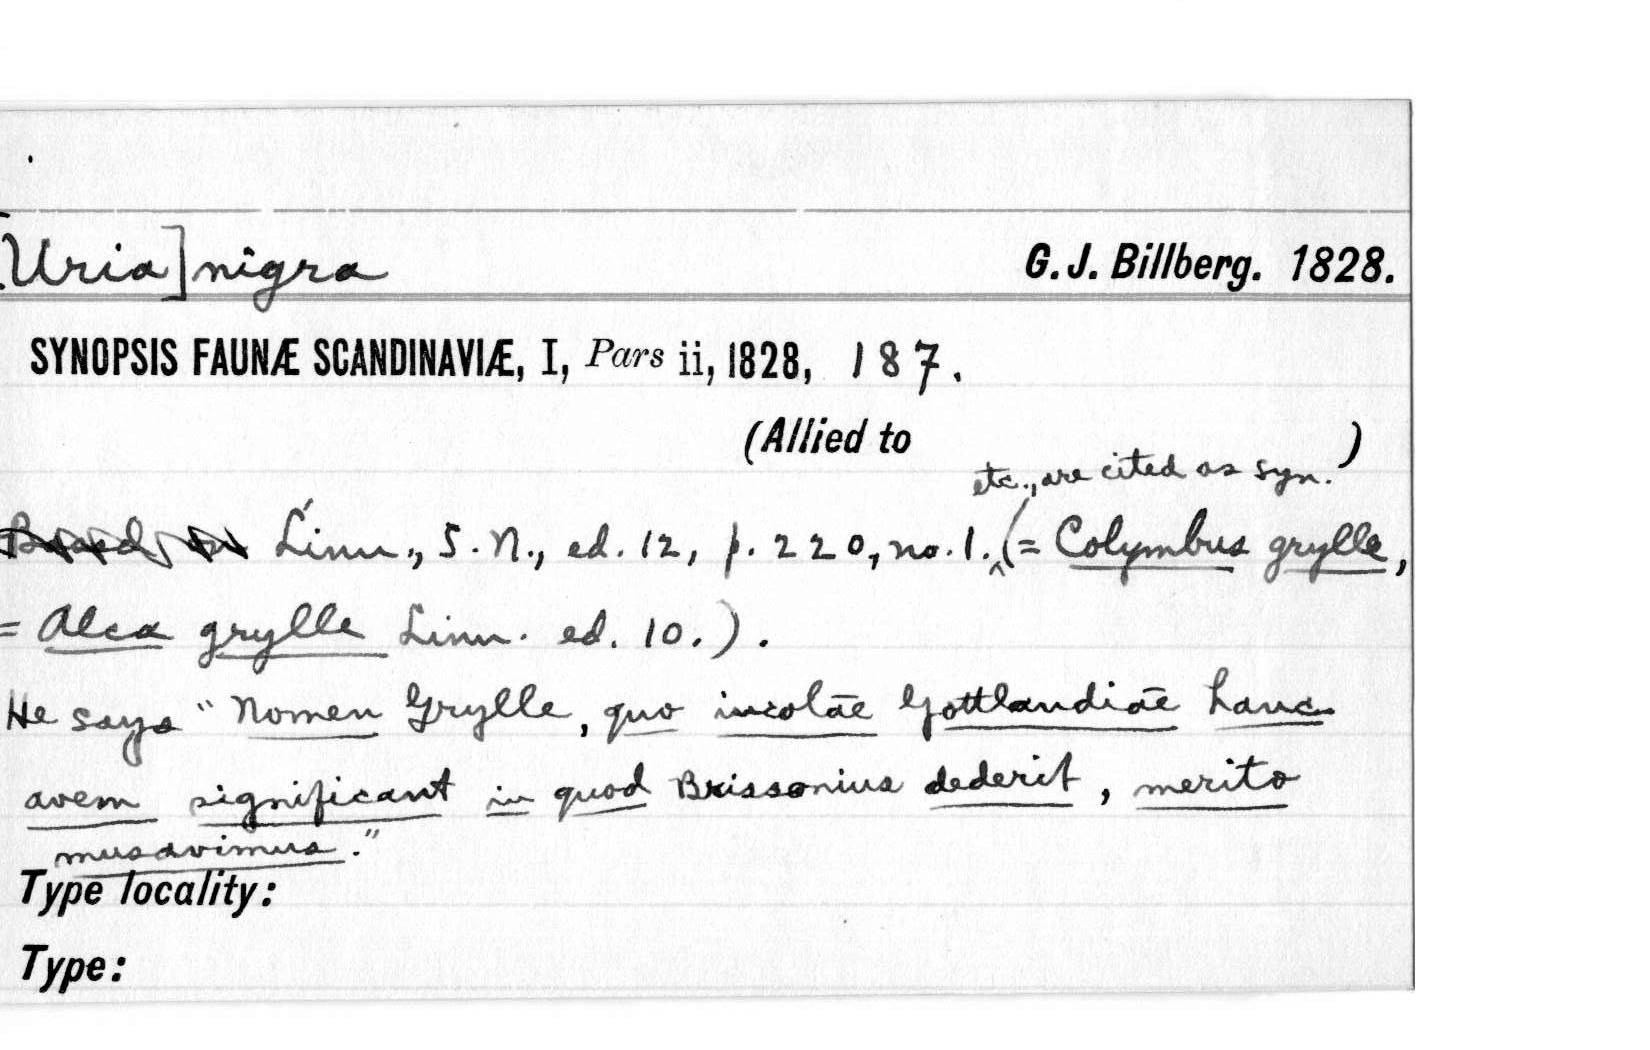 [Uria] nigra G. J. Billberg. 1828.
SYNOPSIS FAUNÆ SCANDINAVIÆ, I, Pars ii, 1828, 187.
(Allied to )
etc., are cited as syn.
Linn., S. N., ed. 12, p. 220, no. 1. (= Colymbus grylle,
= Alca grylle Linn. ed. 10.).
He says "Nomen Grylle, quo incolae Gottlandiae hanc
avem significant in quod Brissonius dederit, merito
musavimus."
Type locality:
Type: